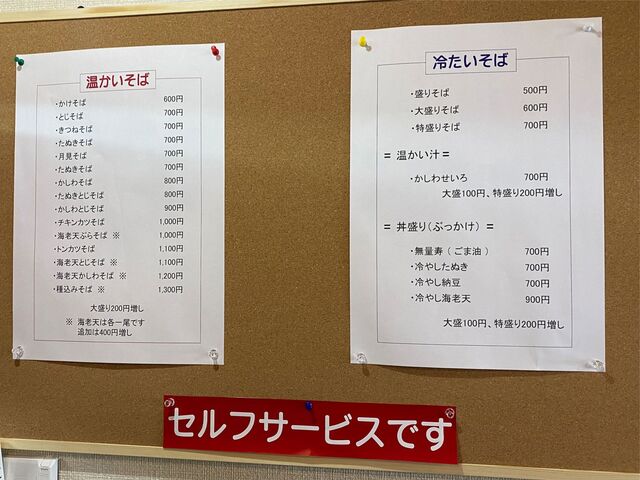 温かいそば
・かけそば 600円
・とじそば 700円
・きつねそば 700円
・たぬきそば 700円
・月見そば 700円
・たぬきそば 700円
・かしわそば 800円
・たぬきとじそば 800円
・かしわとじそば 900円
・チキンカツそば 1,000円
・海老天ぷらそば ※ 1,000円
・トンカツそば 1,100円
・海老天とじそば ※ 1,100円
・海老天かしわそば ※ 1,200円
・種込みそば ※ 1,300円
大盛り200円増し
※ 海老天は各一尾です
追加は400円増し
冷たいそば
・盛りそば 500円
・大盛りそば 600円
・特盛りそば 700円
= 温かい汁 =
・かしわせいろ 700円
大盛100円、特盛り200円増し
= 丼盛り(ぶっかけ) =
・無量寿 ( ごま油 ) 700円
・冷やしたぬき 700円
・冷やし納豆 700円
・冷やし海老天 900円
大盛100円、特盛り200円増し
セルフサービスです